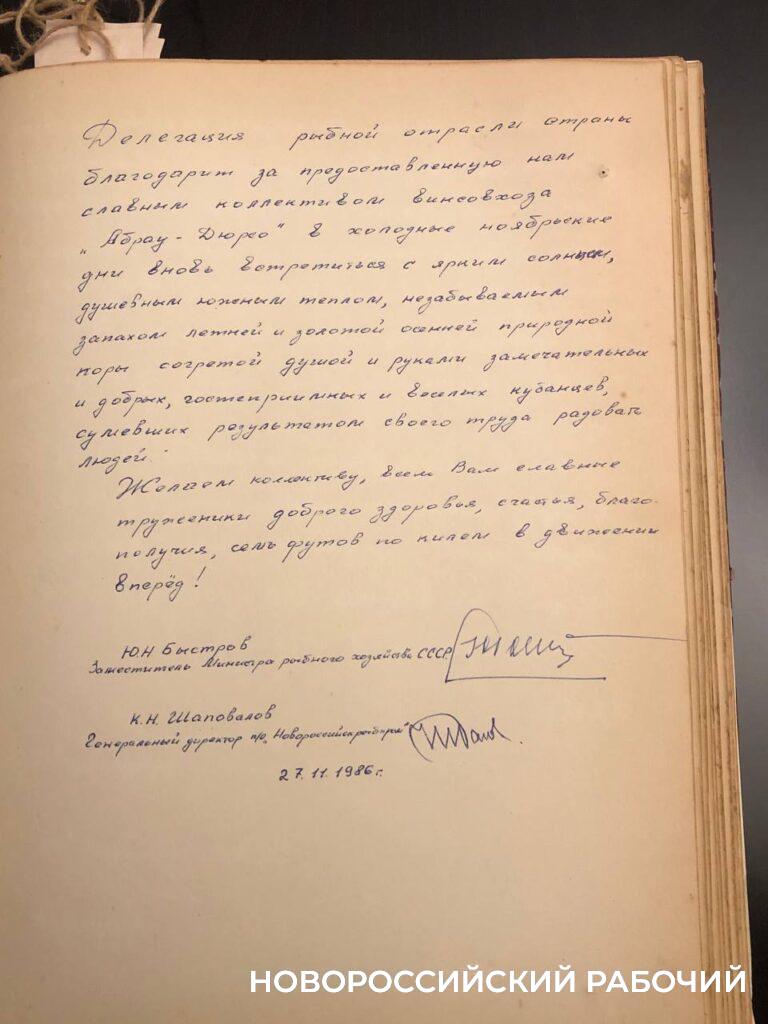 Делегация рыбной отрасли страны
благодарит за предоставленную нам
славным коллективом винсовхоза
„Абрау-Дюрсо" в холодные ноябрьские
дни вновь встретиться с ярким солнцем,
душевным южным теплом, незабываемым
запахом летней и золотой осенней природной
поры согретой душой и руками замечательных
и добрых, гостеприимных и веселых кубанцев,
сумевших результатом своего труда радовать
людей.
Желаем коллективу, всем Вам славные
труженики доброго здоровья, счастья, благо-
получия, семь футов по килем в движении
вперёд!
Ю.Н Быстров
Заместитель Министра рыбного хозяйства СССР
К.Н. Шаповалов
Генеральный директор п/о „Новороссийскрыбпром"
27.11.1986г.
НОВОРОССИЙСКИЙ РАБОЧИЙ